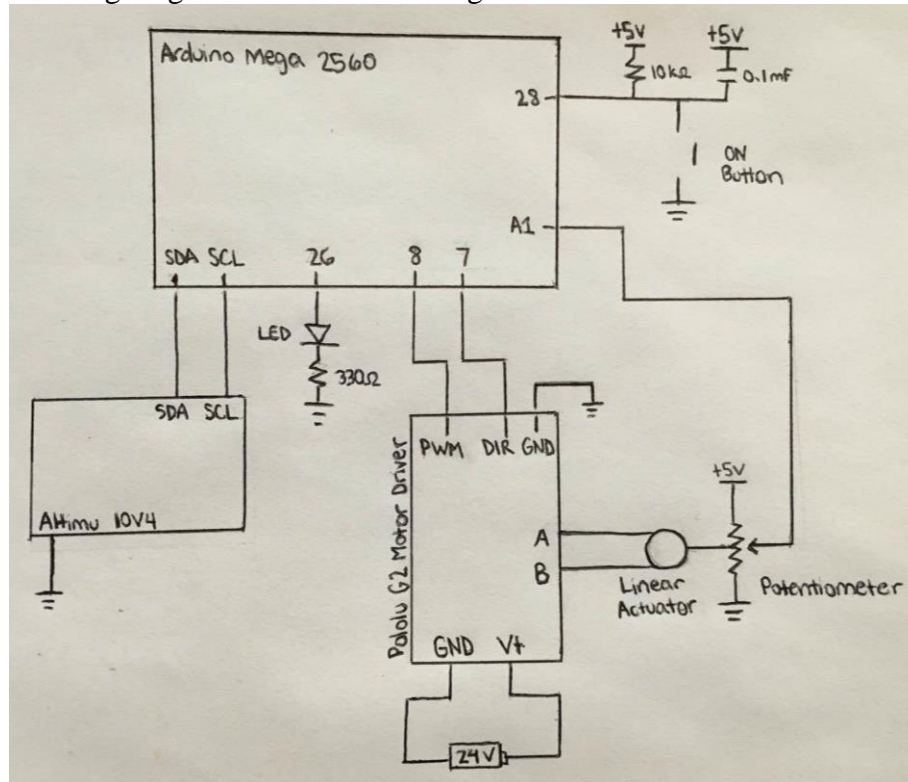 Arduino Mega 2560
+5V
+5V
10kΩ
0.1mF
28
ON
Button
A1
SDA SCL
26
8
7
LED
330Ω
SDA SCL
Altimu 10V4
Pololu G2 Motor Driver
PWM DIR GND
A
B
GND V+
24V
Linear
Actuator
+5V
Potentiometer